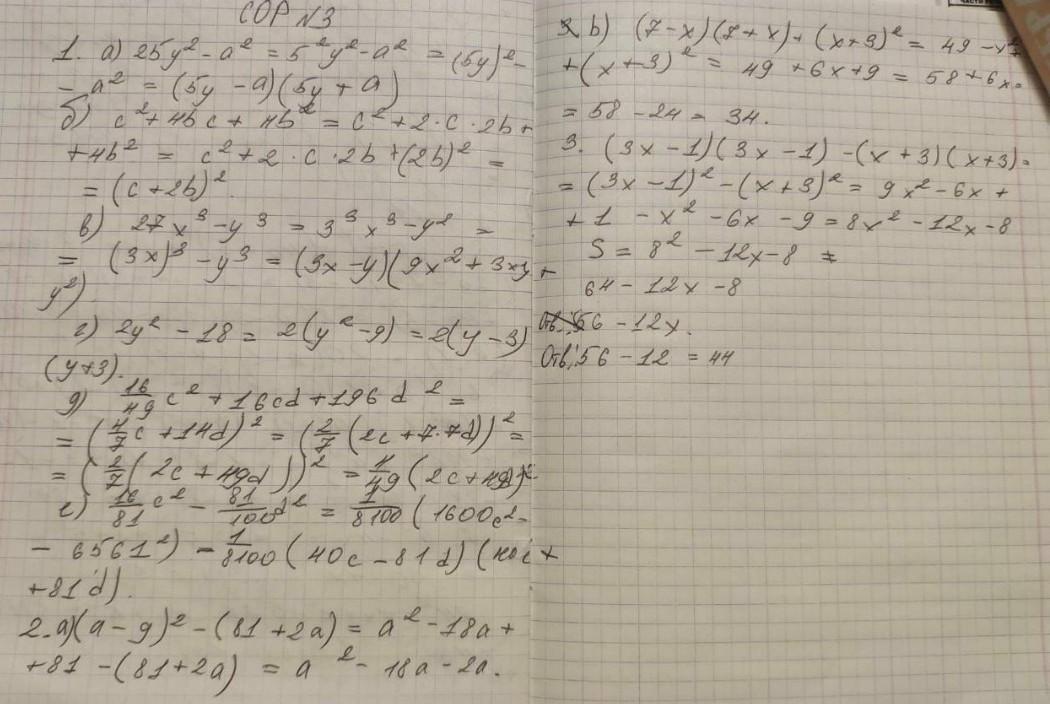 СОР №3
1. а) 25y² - a² = 5²y² - a² = (5y)² -
- a² = (5y - a)(5y + a)
б) c² + 4bc + 4b² = c² + 2·c·2b +
+ 4b² = c² + 2·c·2b + (2b)² =
= (c + 2b)².
в) 27x³ - y³ = 3³x³ - y² =
= (3x)³ - y³ = (3x - y)(9x² + 3xy +
y²)
г) 2y² - 18 = 2(y² - 9) = 2(y - 3)
(y + 3).
д) 16/49 c² + 16cd + 196d² =
= (4/7 c + 14d)² = (2/7 (2c + 7·7d))² =
= (2/7 (2c + 49d))² = 4/49 (2c + 49d)²
е) 16/81 c² - 81/100 d² = 1/8100 (1600c² -
- 6561²) - 1/8100 (40c - 81d)(40c +
+ 81d).
2. а)(a - 9)² - (81 + 2a) = a² - 18a +
+ 81 - (81 + 2a) = a² - 18a - 2a.
b) (7 - x)(7 + x) + (x + 3)² = 49 - x² +
+ (x + 3)² = 49 + 6x + 9 = 58 + 6x =
= 58 - 24 = 34.
3. (3x - 1)(3x - 1) - (x + 3)(x + 3) =
= (3x - 1)² - (x + 3)² = 9x² - 6x +
+ 1 - x² - 6x - 9 = 8x² - 12x - 8
S = 8² - 12x - 8 =
64 - 12x - 8
Отв.: 56 - 12x.
Отв.: 56 - 12 = 44